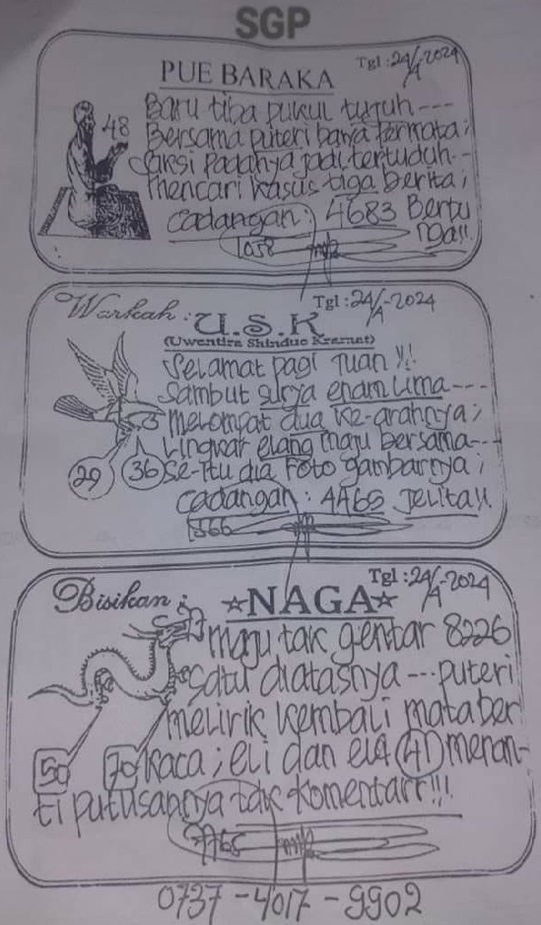 SGP
PUE BARAKA
Tgl : 24/4-2024
48
Baru tiba pukul tujuh ---
Bersama puteri banya permata ;
Saksi padanya jadi tertuduh --
Mencari kasus tiga berita ;
Cadangan : 4683 Bertu
nga!!
1058
Warkah :
U.S.K
Tgl : 24/4-2024
(Uwentira Shinduo Kramat)
Selamat pagi Tuan !!
Sambut surya enam lima ----
Melompat dua ke-arahnya ;
Lingkar elang maju bersama ---
29 36 Se-itu dia Foto gambarnya ;
Cadangan : 4465 Jelita!!
1366
Bisikan :
☆NAGA☆
Tgl : 24/4-2024
maju tak gentar 8226
Satu diatasnya --- puteri
melirik kembali mata ber
50 70 kaca ; eli dan ela 41 menan-
ti putusannya tak komentarr!!!
0737 - 4017 - 9902